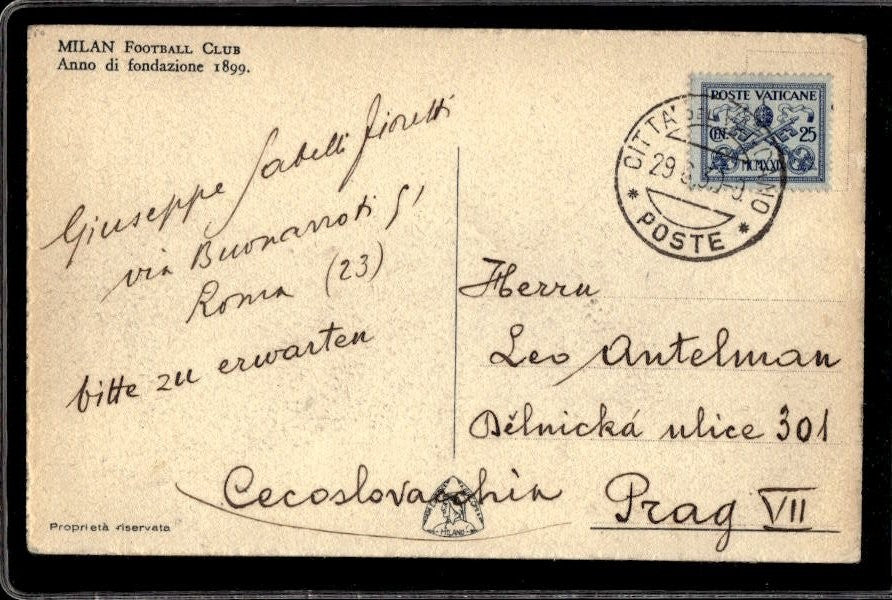 MILAN FOOTBALL CLUB
Anno di fondazione 1899.
POSTE VATICANE
CEN. 25
MCMXXIX
CITTA' DEL VATICANO
29
* POSTE *
Giuseppe Sabelli Fioretti
via Buonarroti 51
Roma (23)
bitte zu erwarten
Herrn
Leo Antelman
Dělnická ulice 301
Cecoslovacchia
Prag VII
MILANO
Proprietà riservata